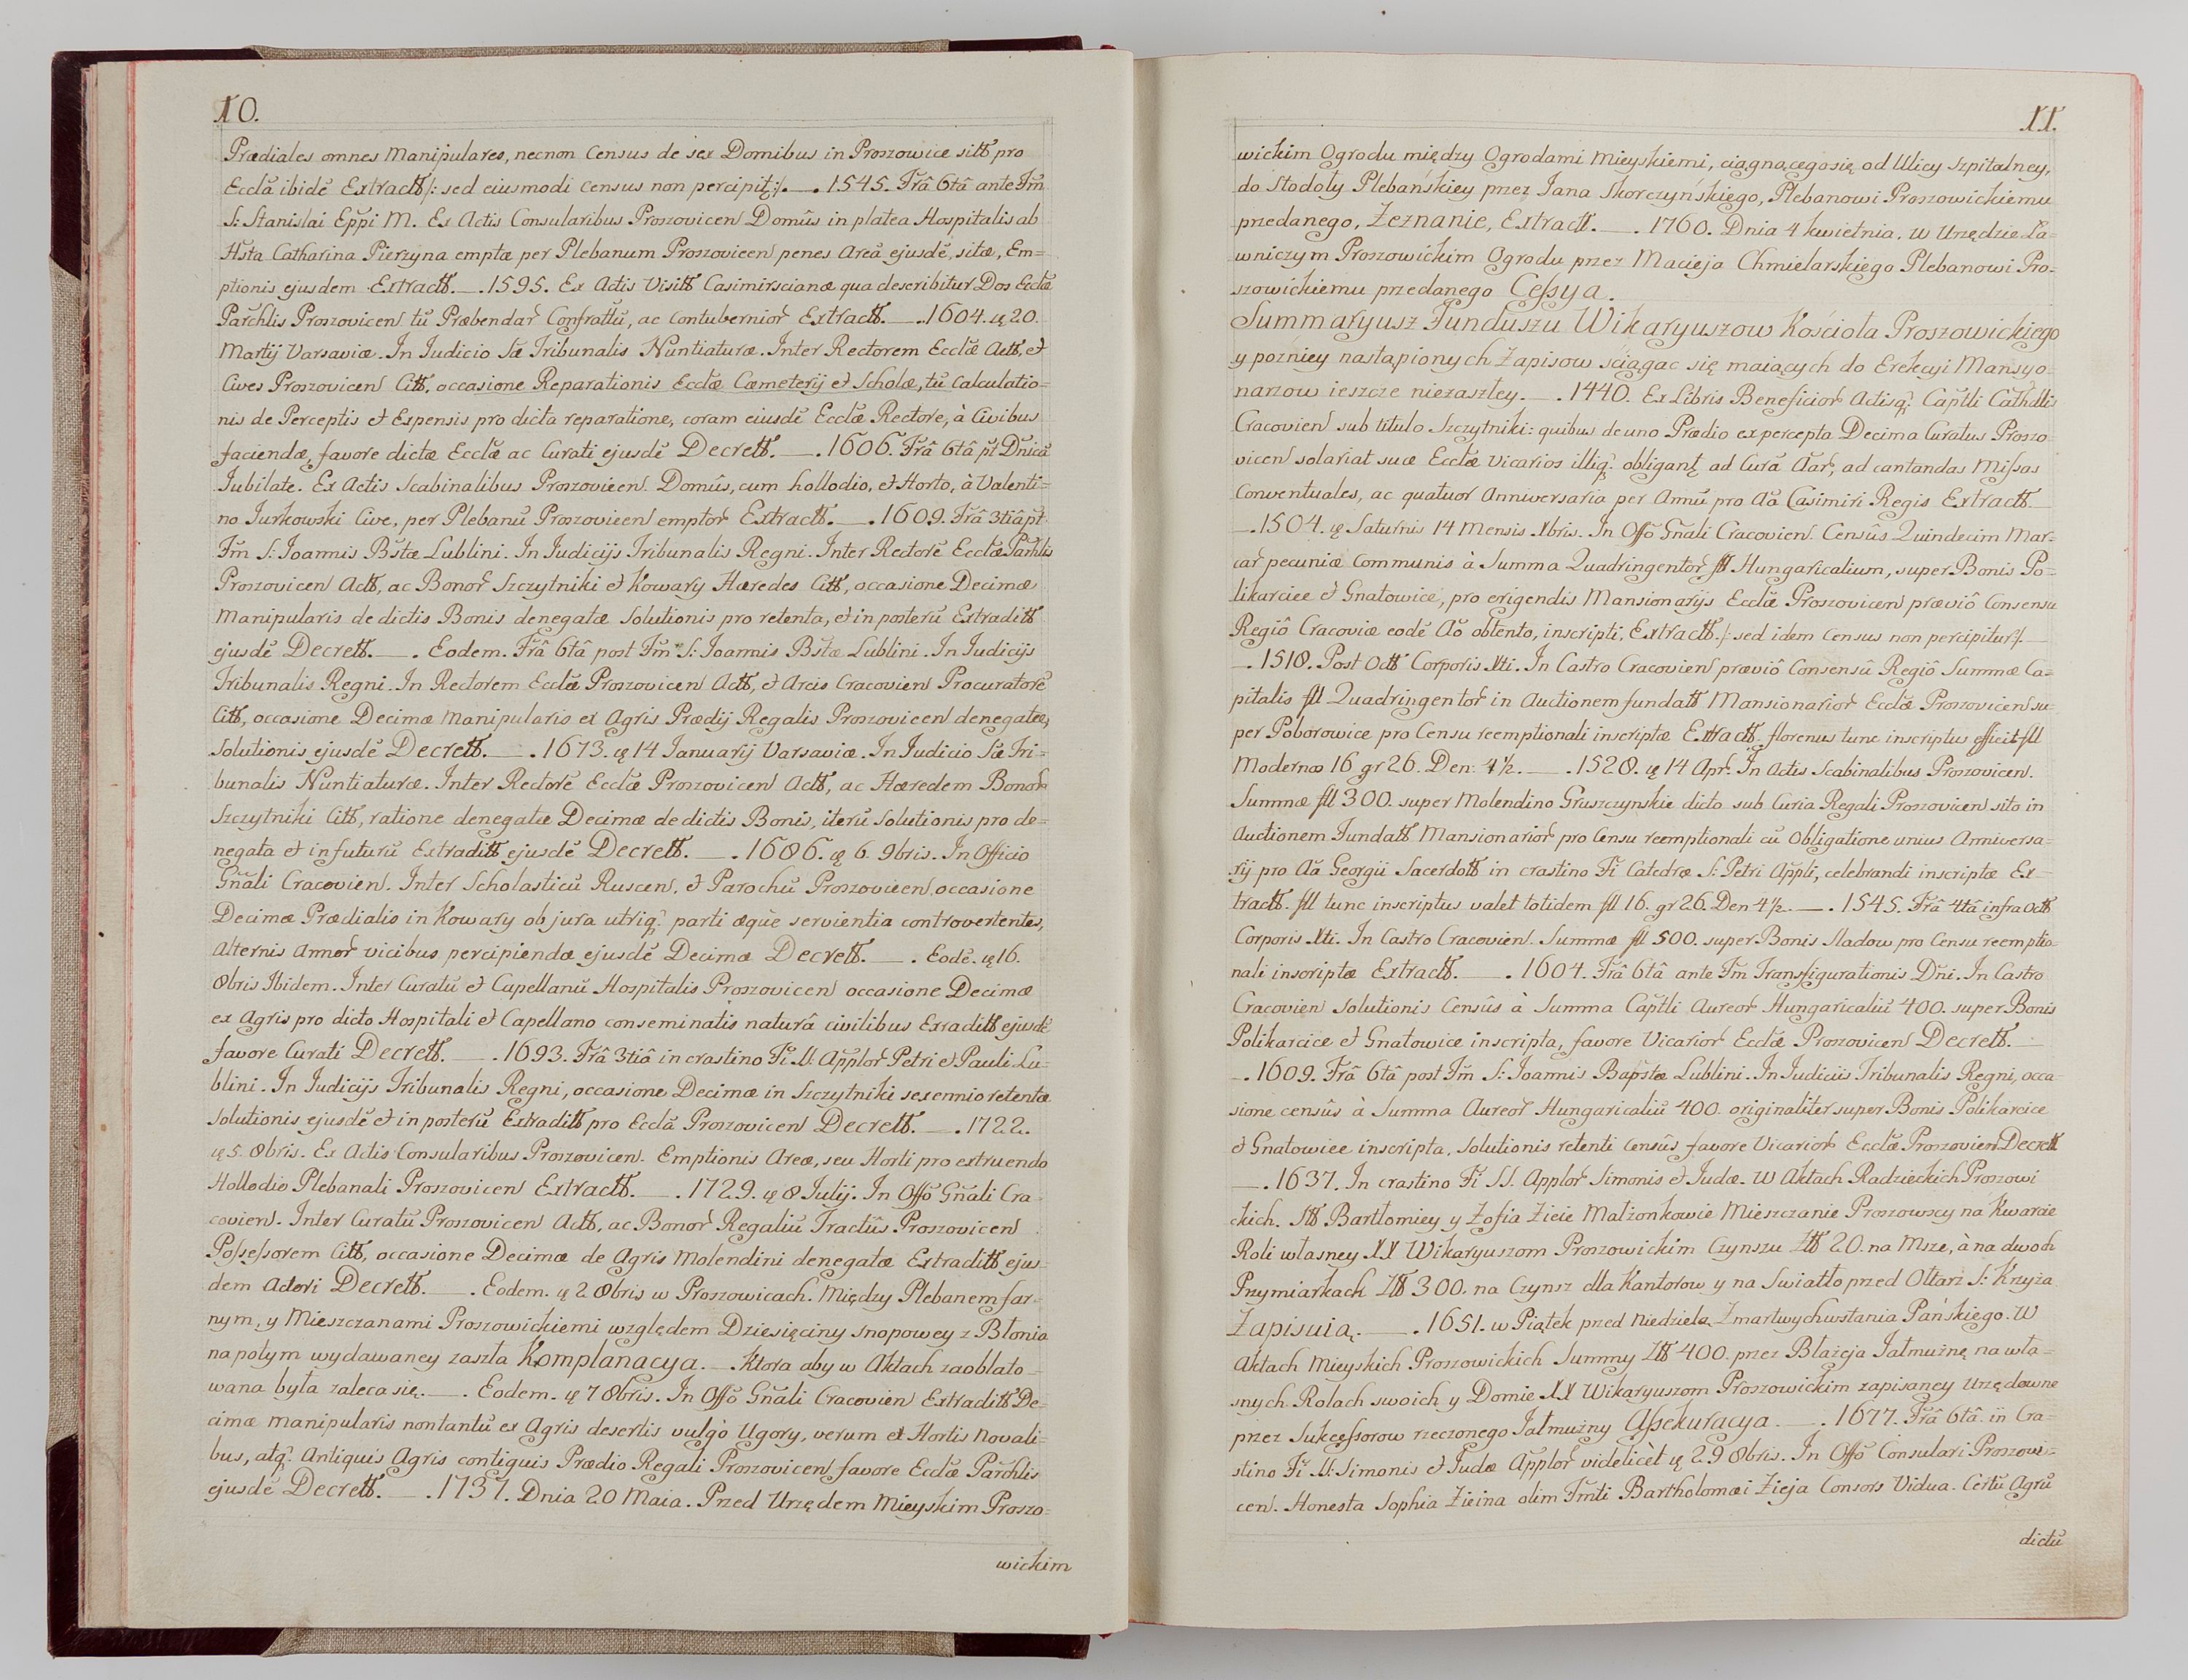 10.
Prædiales omnes Manipulares, necnon Census de sex Domibus in Proszowice sitt̃ pro
Ecclã ibidẽ Extractt̃/: sed eiusmodi census non percipit̨:/. —. 1545. Frâ 6tâ ante Fm̃
S: Stanislai Ep̃pi M. Ex Actis Consularibus Proszovicen̄ Domûs in platea Hospitalis ab
Hs̃ta Catharina Pierzyna emptæ per Plebanum Proszovicen̄ penes Areã ejusdẽ, sitæ, Em=
ptionis ejusdem Extractt̃. —. 1595. Ex Actis Visitt̃ Casimirscianæ qua describitur Dos Ecclæ̃
Par̃chlis Proszovicen̄ tũ Præbendar̃ Confrattũ, ac Contubernior̃ Extractt̃. —. 1604. ą 20.
Martij Varsaviæ. In Iudicio Sæ̃ Tribunalis Nuntiaturæ. Inter Rectorem Ecclæ̃ Actt̃, et
Cives Proszovicen̄ Citt̃, occasione Reparationis Ecclæ̃ Cæmeterij et Scholæ, tũ Calculatio=
nis de Perceptis et Expensis pro dicta reparatione, coram eiusdẽ Ecclæ̃ Rectore, à Civibus
faciendæ, favore dictæ Ecclæ̃ ac Curati ejusdẽ Decrett̃. —. 1606. Frâ 6tâ pt̃ Dñicã
Iubilate. Ex Actis Scabinalibus Proszovicen̄. Domûs, cum hollodio, et Horto, à Valenti=
no Iurkowski Cive, per Plebanũ Proszovicen̄ emptor̃ Extractt̃. —. 1609. Frâ 3tiâ pt̃
Fm̃ S: Ioannis Bs̃tæ Lublini. In Iudicijs Tribunalis Regni. Inter Rectorẽ Ecclæ̃ Par̃hlis
Proszovicen̄ Actt̃, ac Bonor̃ Szczytniki et Kowary Hæredes Citt̃, occasione Decimæ
Manipularis de dictis Bonis denegatæ Solutionis pro retenta, et in posterũ Extraditt̃
ejusdẽ Decrett̃. —. Eodem. Frâ 6tâ post Fm̃ S: Ioannis Bs̃tæ Lublini. In Iudicijs
Tribunalis Regni. In Rectorem Ecclæ̃ Proszovicen̄ Actt̃, et Arcis Cracovien̄ Procuratorẽ
Citt̃, occasione Decimæ Manipularis ex Agris Prædij Regalis Proszovicen̄ denegatæ,
Solutionis ejusdẽ Decrett̃. —. 1673. ą 14 Ianuarij Varsaviæ. In Iudicio Sæ̃ Tri=
bunalis Nuntiaturæ. Inter Rectorẽ Ecclæ̃ Proszovicen̄ Actt̃, ac Hæredem Bonor̃
Szczytniki Citt̃, ratione denegatæ Decimæ de dictis Bonis, iterũ Solutionis pro de=
negata et in futurũ Extraditt̃ ejusdẽ Decrett̃. —. 1686. ą 6. 9bris. In Officio
Gñali Cracovien̄. Inter Scholasticũ Ruscen̄, et Parochũ Proszovicen̄, occasione
Decimæ Prædialis in Kowary ob jura utriq̃ parti æque servientia controvertentes,
Alternis Annor̃ vicibus percipiendæ ejusdẽ Decimæ Decrett̃. —. Eodẽ. ą 16.
8bris Ibidem. Inter Curatũ et Capellanũ Hospitalis Proszovicen̄ occasione Decimæ
ex Agris pro dicto Hospitali et Capellano conseminatis naturâ civilibus Exraditt̃ ejusdẽ
favore Curati Decrett̃. —. 1693. Frâ 3tiâ in crastino Fi SS. Applor̃ Petri et Pauli Lu=
blini. In Iudicijs Tribunalis Regni, occasione Decimæ in Szczytniki sexennio retentæ
Solutionis ejusdẽ et in posterũ Extraditt̃ pro Ecclã Proszovicen̄ Decrett̃. —. 1722.
ą 5. 8bris. Ex Actis Consularibus Proszovicen̄. Emptionis Areæ, seu Horti pro extruendo
Hollodio Plebanali Proszovicen̄ Extractt̃. —. 1729. ą 8 Iulij. In Offo Gñali Cra
covien̄. Inter Curatũ Proszovicen̄ Actt̃, ac Bonor̃ Regaliũ Tractûs Proszovicen̄
Poſseſsorem Citt̃, occasione Decimæ de Agris Molendini denegatæ Extraditt̃ ejus=
dem Actori Decrett̃. —. Eodem. ą 2 8bris w Proszowicach. Między Plebanem far=
nym, y Mieszczanami Proszowickiemi względem Dziesięciny snopowey z Błonia
na polym wydawaney zaszła Komplanacya. — Ktora aby w Aktach zaoblato=
wana była zaleca się. —. Eodem. ą 7 8bris. In Offo Gñali Cracovien̄ Extraditt̃ De=
cimæ Manipularis non tantũ ex Agris desertis vulgò Ugory, verum et Hortis Novali=
bus, atq̃ Antiquis Agris contiguis Prædio Regali Proszovicen̄ favore Ecclæ̃ Par̃chlis
ejusdẽ Decrett̃. —. 1737. Dnia 20 Maia. Przed Urzędem Mieyskim Proszo=
wickim
11.
wickim Ogrodu między Ogrodami Mieyskiemi, ciągnącego się od Ulicy Szpitalney,
do Stodoły Plebańskiey przez Iana Skorczyńskiego, Plebanowi Proszowickiemu
przedanego, Zeznanie, Extractt̃. —. 1760. Dnia 4 kwietnia. W Urzędzie Ła=
wniczym Proszowickim Ogrodu przez Macieja Chmielarskiego Plebanowi Pro=
szowickiemu przedanego Ceſsya.
Summaryusz Funduszu Wikaryuszow Kościoła Proszowickiego
y pozniey nastąpionych Zapisow ściągac się maiących do Erekcyi Mansyo=
narzow ieszcze niezaszłey. —. 1440. Ex Libris Beneficior̃ Actisq̃ Cap̃tli Cath̃dlis
Cracovien̄ sub titulo Szczytniki: quibus de uno Prædio ex percepta Decima Curatus Proszo
vicen̄ solariat suæ Ecclæ̃ Vicarios illiq̃ obligant̨ ad Curã Aar̃, ad cantandas Miſsas
Conventuales, ac quatuor Anniversaria per Annũ pro Aã Casimiri Regis Extractt̃. —
—. 1504. ą Saturnis 14 Mensis Xbris. In Offo Gñali Cracovien̄. Censûs Quindecim Mar=
car̃ pecuniæ Communis à Summa Quadringentor̃ fll Hungaricalium, super Bonis Po=
likarcice et Gnatowice, pro erigendis Mansionarijs Ecclæ̃ Proszovicen̄ præviô Consensu
Regiô Cracoviæ eodẽ Aõ obtento, inscripti, Extractt̃./: sed idem Census non percipitur:/. —
—. 1518. Post Octt̃ Corporis Xti. In Castro Cracovien̄ præviô Consensû Regiô Summæ Ca=
pitalis fll Quadringentor̃ in Auctionem fundatt̃ Mansionarior̃ Ecclæ̃ Proszovicen̄ su=
per Poborowice pro Censu reemptionali inscriptæ Extractt̃. florenus tunc inscriptus efficit fll
Modernos 16 gr 26. Den: 4½. —. 1528. ą 14 Apr̃. In Actis Scabinalibus Proszovicen̄.
Summæ fll 300. super Molendino Gruszczynskie dicto sub Curia Regali Proszovicen̄ sito in
Auctionem Fundatt̃ Mansionarior̃ pro Censu reemptionali cũ Obligatione unius Anniversa=
rij pro Aã Georgii Sacerdott̃ in crastino Fi Catedræ S: Petri Appli, celebrandi inscriptæ Ex=
tractt̃. fll tunc inscriptus valet totidem fll 16. gr 26. Den 4½. —. 1545. Frâ 4tâ infra Octt̃
Corporis Xti. In Castro Cracovien̄. Summæ fll 500. super Bonis Sladow pro Censu reemptio=
nali inscriptæ Extractt̃. —. 1604. Frâ 6tâ ante Fm̃ Transfigurationis Dñi. In Castro
Cracovien̄ Solutionis Censûs à Summa Cap̃tli Aureor̃ Hungaricaliũ 400. super Bonis
Polikarcice et Gnatowice inscripta, favore Vicarior̃ Ecclæ̃ Proszovicen̄ Decrett̃. —
—. 1609. Frâ 6tâ post Fm̃ S: Ioannis Bap̃stæ Lublini. In Iudiciis Tribunalis Regni, occa=
sione censûs à Summa Aureor̃ Hungaricaliũ 400. originaliter super Bonis Polikarcice
et Gnatowice inscripta, Solutionis retenti Censûs favore Vicarior̃ Ecclæ̃ Proszovicen̄ Decrett̃
—. 1637. In crastino Fi SS. Applor̃ Simonis et Iudæ. W Aktach Radzieckich Proszowi
ckich. Stt̃ Bartłomiey y Zofia Zieie Małzonkowie Mieszczanie Proszowscy na Kwarcie
Roli własney XX Wikaryuszom Proszowickim Czynszu Ztt̃ 20. na Msze, à na dwoch
Przymiarkach Ztt̃ 300. na Czynsz dla Kantorow y na Swiatło przed Ołtarz S: Krzyża
Zapisuią. —. 1651. w Piątek przed Niedzielą Zmartwychwstania Pańskiego. W
Aktach Mieyskich Proszowickich Summy Ztt̃ 400. przez Błażeja Jałmużnę na wła=
snych Rolach swoich y Domie XX Wikaryuszom Proszowickim zapisaney Urzędowne
przez Sukceſsorow rzeczonego Jałmużny Aſsekuracya. —. 1677. Frâ 6tâ in Cra=
stino Fi SS: Simonis et Iudæ Applor̃ videlicèt ą 29 8bris. In Offo Consulari Proszowi=
cen̄. Honesta Sophia Zieina olim Fmti Bartholomæi Zieja Consors Vidua. Certũ Agrũ
dictũ